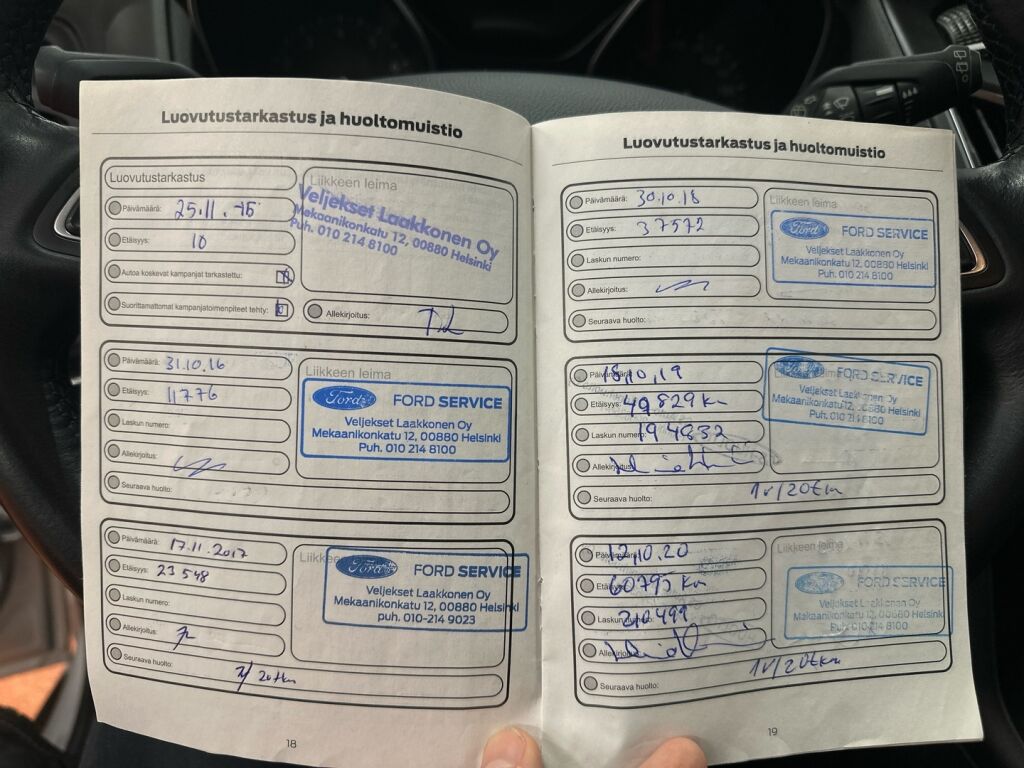 Luovutustarkastus ja huoltomuistio
Luovutustarkastus
Päivämäärä: 25.11.15
Etäisyys: 10
Autoa koskevat kampanjat tarkastettu:
Suorittamattomat kampanjatoimenpiteet tehty:
Liikkeen leima
Veljekset Laakkonen Oy
Mekaanikonkatu 12, 00880 Helsinki
Puh. 010 214 8100
Allekirjoitus:
Päivämäärä: 31.10.16
Etäisyys: 11776
Laskun numero:
Allekirjoitus:
Seuraava huolto:
Liikkeen leima
Ford FORD SERVICE
Veljekset Laakkonen Oy
Mekaanikonkatu 12, 00880 Helsinki
Puh. 010 214 8100
Päivämäärä: 17.11.2017
Etäisyys: 23548
Laskun numero:
Allekirjoitus:
Seuraava huolto: 20tkm
Liikkeen leima
Ford FORD SERVICE
Veljekset Laakkonen Oy
Mekaanikonkatu 12, 00880 Helsinki
puh. 010-214 9023
18
Luovutustarkastus ja huoltomuistio
Päivämäärä: 30.10.18
Etäisyys: 37572
Laskun numero:
Allekirjoitus:
Seuraava huolto:
Liikkeen leima
Ford FORD SERVICE
Veljekset Laakkonen Oy
Mekaanikonkatu 12, 00880 Helsinki
Puh. 010 214 8100
Päivämäärä: 18.10.19
Etäisyys: 49829 km
Laskun numero: 194832
Allekirjoitus:
Seuraava huolto: 1v/20tkm
Liikkeen leima
Ford FORD SERVICE
Veljekset Laakkonen Oy
Mekaanikonkatu 12, 00880 Helsinki
Puh. 010 214 8100
Päivämäärä: 12.10.20
Etäisyys: 60793 km
Laskun numero: 210499
Allekirjoitus:
Seuraava huolto: 1v/20tkm
Liikkeen leima
Ford FORD SERVICE
Veljekset Laakkonen Oy
Mekaanikonkatu 12, 00880 Helsinki
Puh. 010 214 8100
19